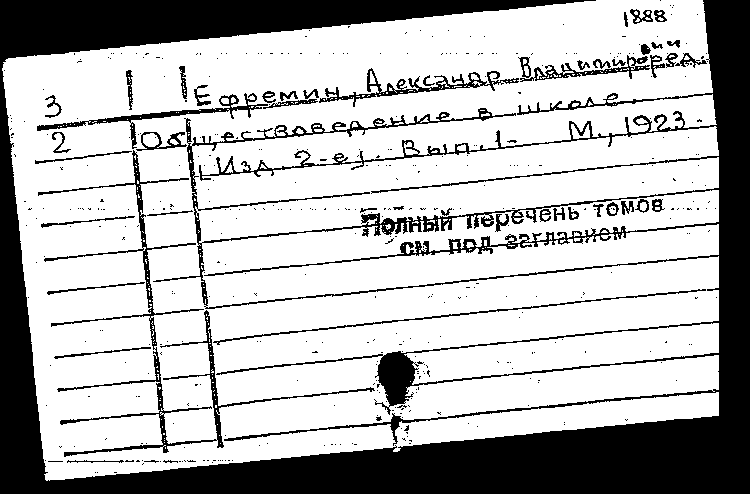 1888
3 Ефремин, Александр Владимирович ред.
2 Обществоведение в школе.
[Изд. 2-е]. Вып. 1- М., 1923-
Полный перечень томов
см. под заглавием